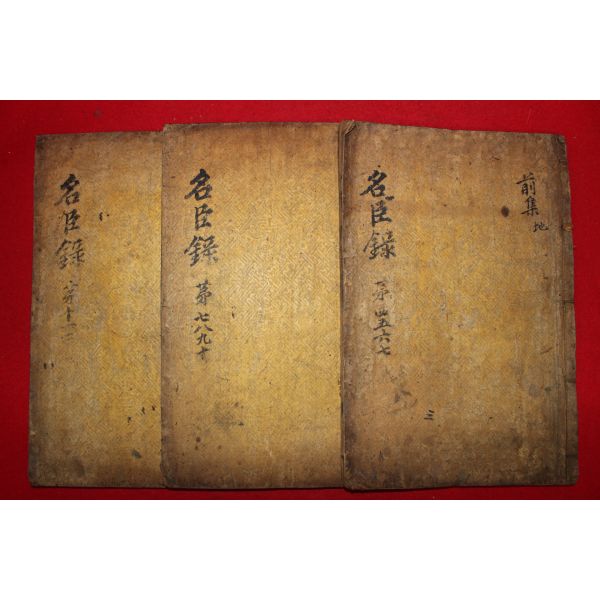 前集 地
名臣錄
第四五六七
三
名臣錄
第七八九十
名臣錄
第十一二